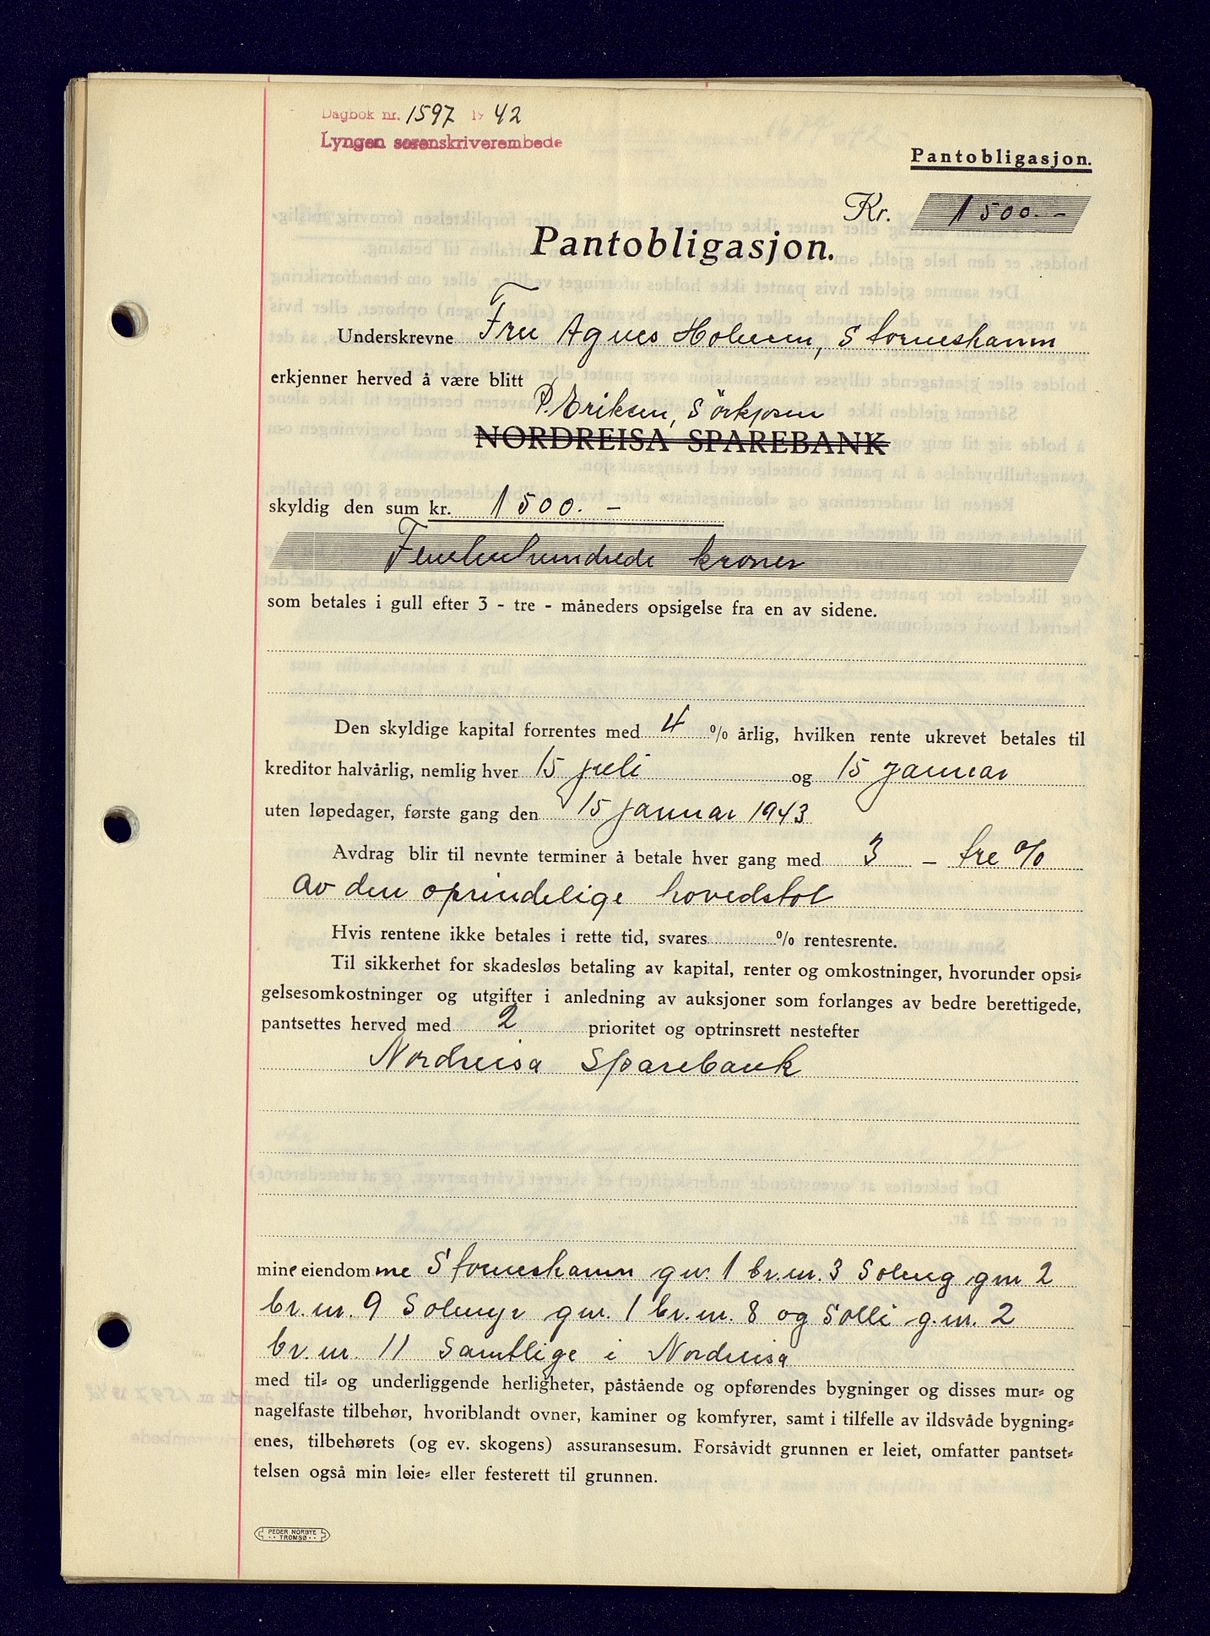 Dagbok nr. 1597 1942
Lyngen sorenskriverembede
Pantobligasjon.
Kr. 1500.-
Pantobligasjon.
Underskrevne Fru Agnes Holmen, Storneshamn
erkjenner herved å være blitt
P. Eriksen, Sörkjosen
NORDREISA SPAREBANK
skyldig den sum kr. 1500.-
Femtenhundrede kroner
som betales i gull efter 3 - tre - måneders opsigelse fra en av sidene.
Den skyldige kapital forrentes med 4 % årlig, hvilken rente ukrevet betales til
kreditor halvårlig, nemlig hver 15 juli og 15 januar
uten løpedager, første gang den 15 januar 1943
Avdrag blir til nevnte terminer å betale hver gang med 3 - tre %
av den oprindelige hovedstol
Hvis rentene ikke betales i rette tid, svares % rentesrente.
Til sikkerhet for skadesløs betaling av kapital, renter og omkostninger, hvorunder opsi-
gelsesomkostninger og utgifter i anledning av auksjoner som forlanges av bedre berettigede,
pantsettes herved med 2 prioritet og optrinsrett nestefter
Nordreisa Sparebank
mine eiendomme Storneshamn gnr. 1 br.nr. 3 Soleng gnr 2
br.nr. 9 Soleng gnr. 1 br.nr. 8 og Solli g.nr. 2
br.nr 11 samtlige i Nordreisa
med til- og underliggende herligheter, påstående og opførendes bygninger og disses mur- og
nagelfaste tilbehør, hvoriblandt ovner, kaminer og komfyrer, samt i tilfelle av ildsvåde bygning-
enes, tilbehørets (og ev. skogens) assuransesum. Forsåvidt grunnen er leiet, omfatter pantset-
telsen også min leie- eller festerett til grunnen.
PEDER NORBYE
TROMSØ